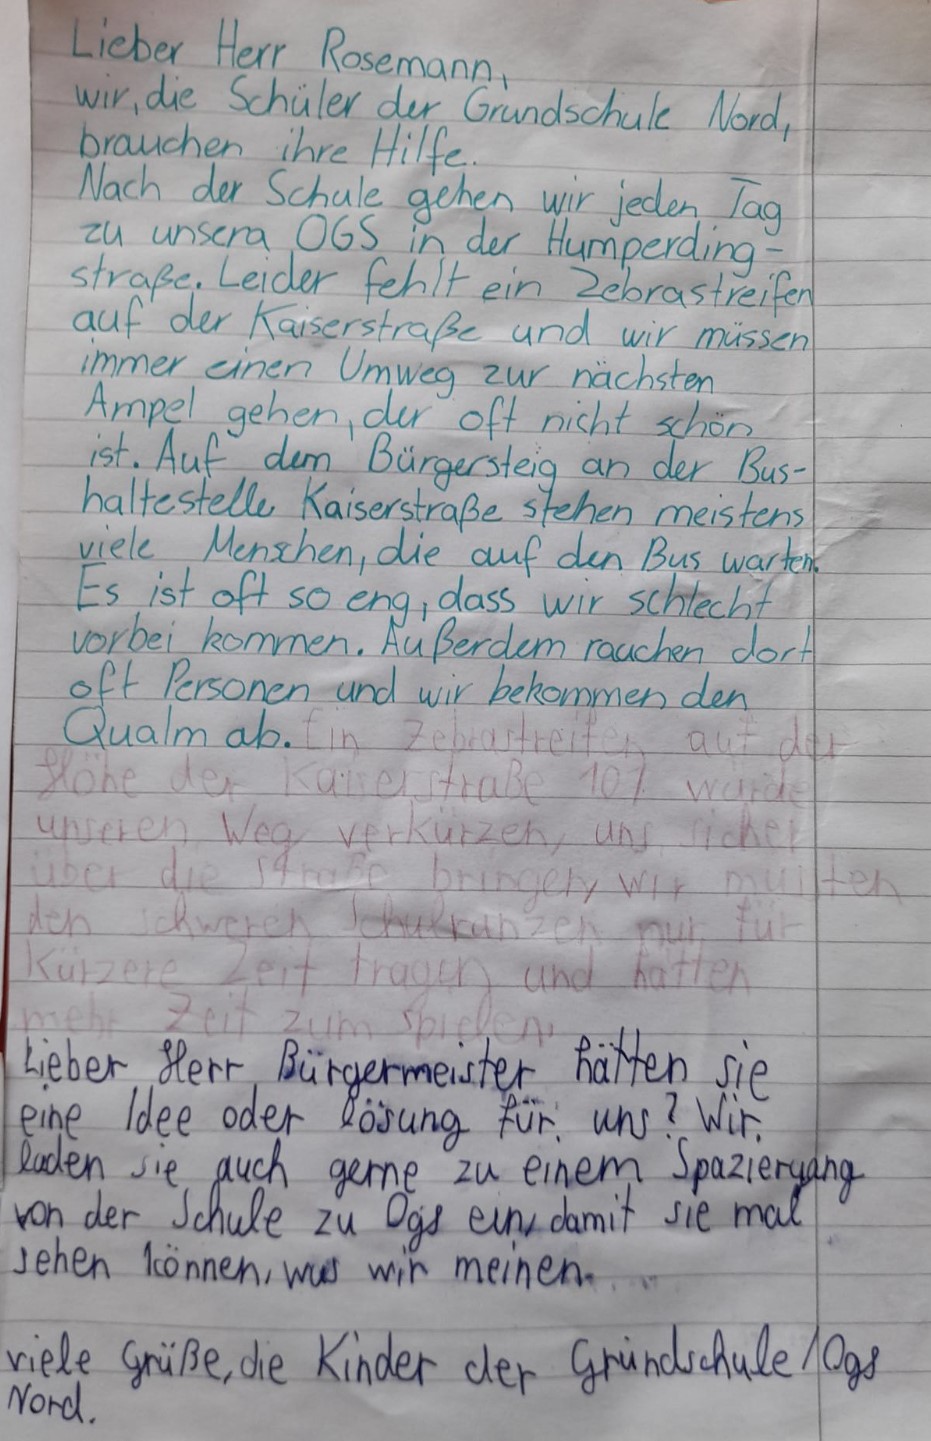 Lieber Herr Rosemann,
wir, die Schüler der Grundschule Nord,
brauchen ihre Hilfe.
Nach der Schule gehen wir jeden Tag
zu unsera OGS in der Humperding-
straße. Leider fehlt ein Zebrastreifen
auf der Kaiserstraße und wir müssen
immer einen Umweg zur nächsten
Ampel gehen, der oft nicht schön
ist. Auf dem Bürgersteig an der Bus-
haltestelle Kaiserstraße stehen meistens
viele Menschen, die auf den Bus warten.
Es ist oft so eng, dass wir schlecht
vorbei kommen. Außerdem rauchen dort
oft Personen und wir bekommen den
Qualm ab. Ein Zebrastreifen auf der
Höhe der Kaiserstraße 107 würde
unseren Weg verkürzen, uns sicher
über die straße bringen, wir müssten
den schweren Schulranzen nur für
Kürzere Zeit tragen und hätten
mehr Zeit zum spielen.
Lieber Herr Bürgermeister hätten sie
eine Idee oder lösung für uns? Wir
laden sie auch gerne zu einem Spaziergang
von der Schule zu Ogs ein, damit sie mal
sehen können, was wir meinen.
viele Grüße, die Kinder der Grundschule/Ogs
Nord.